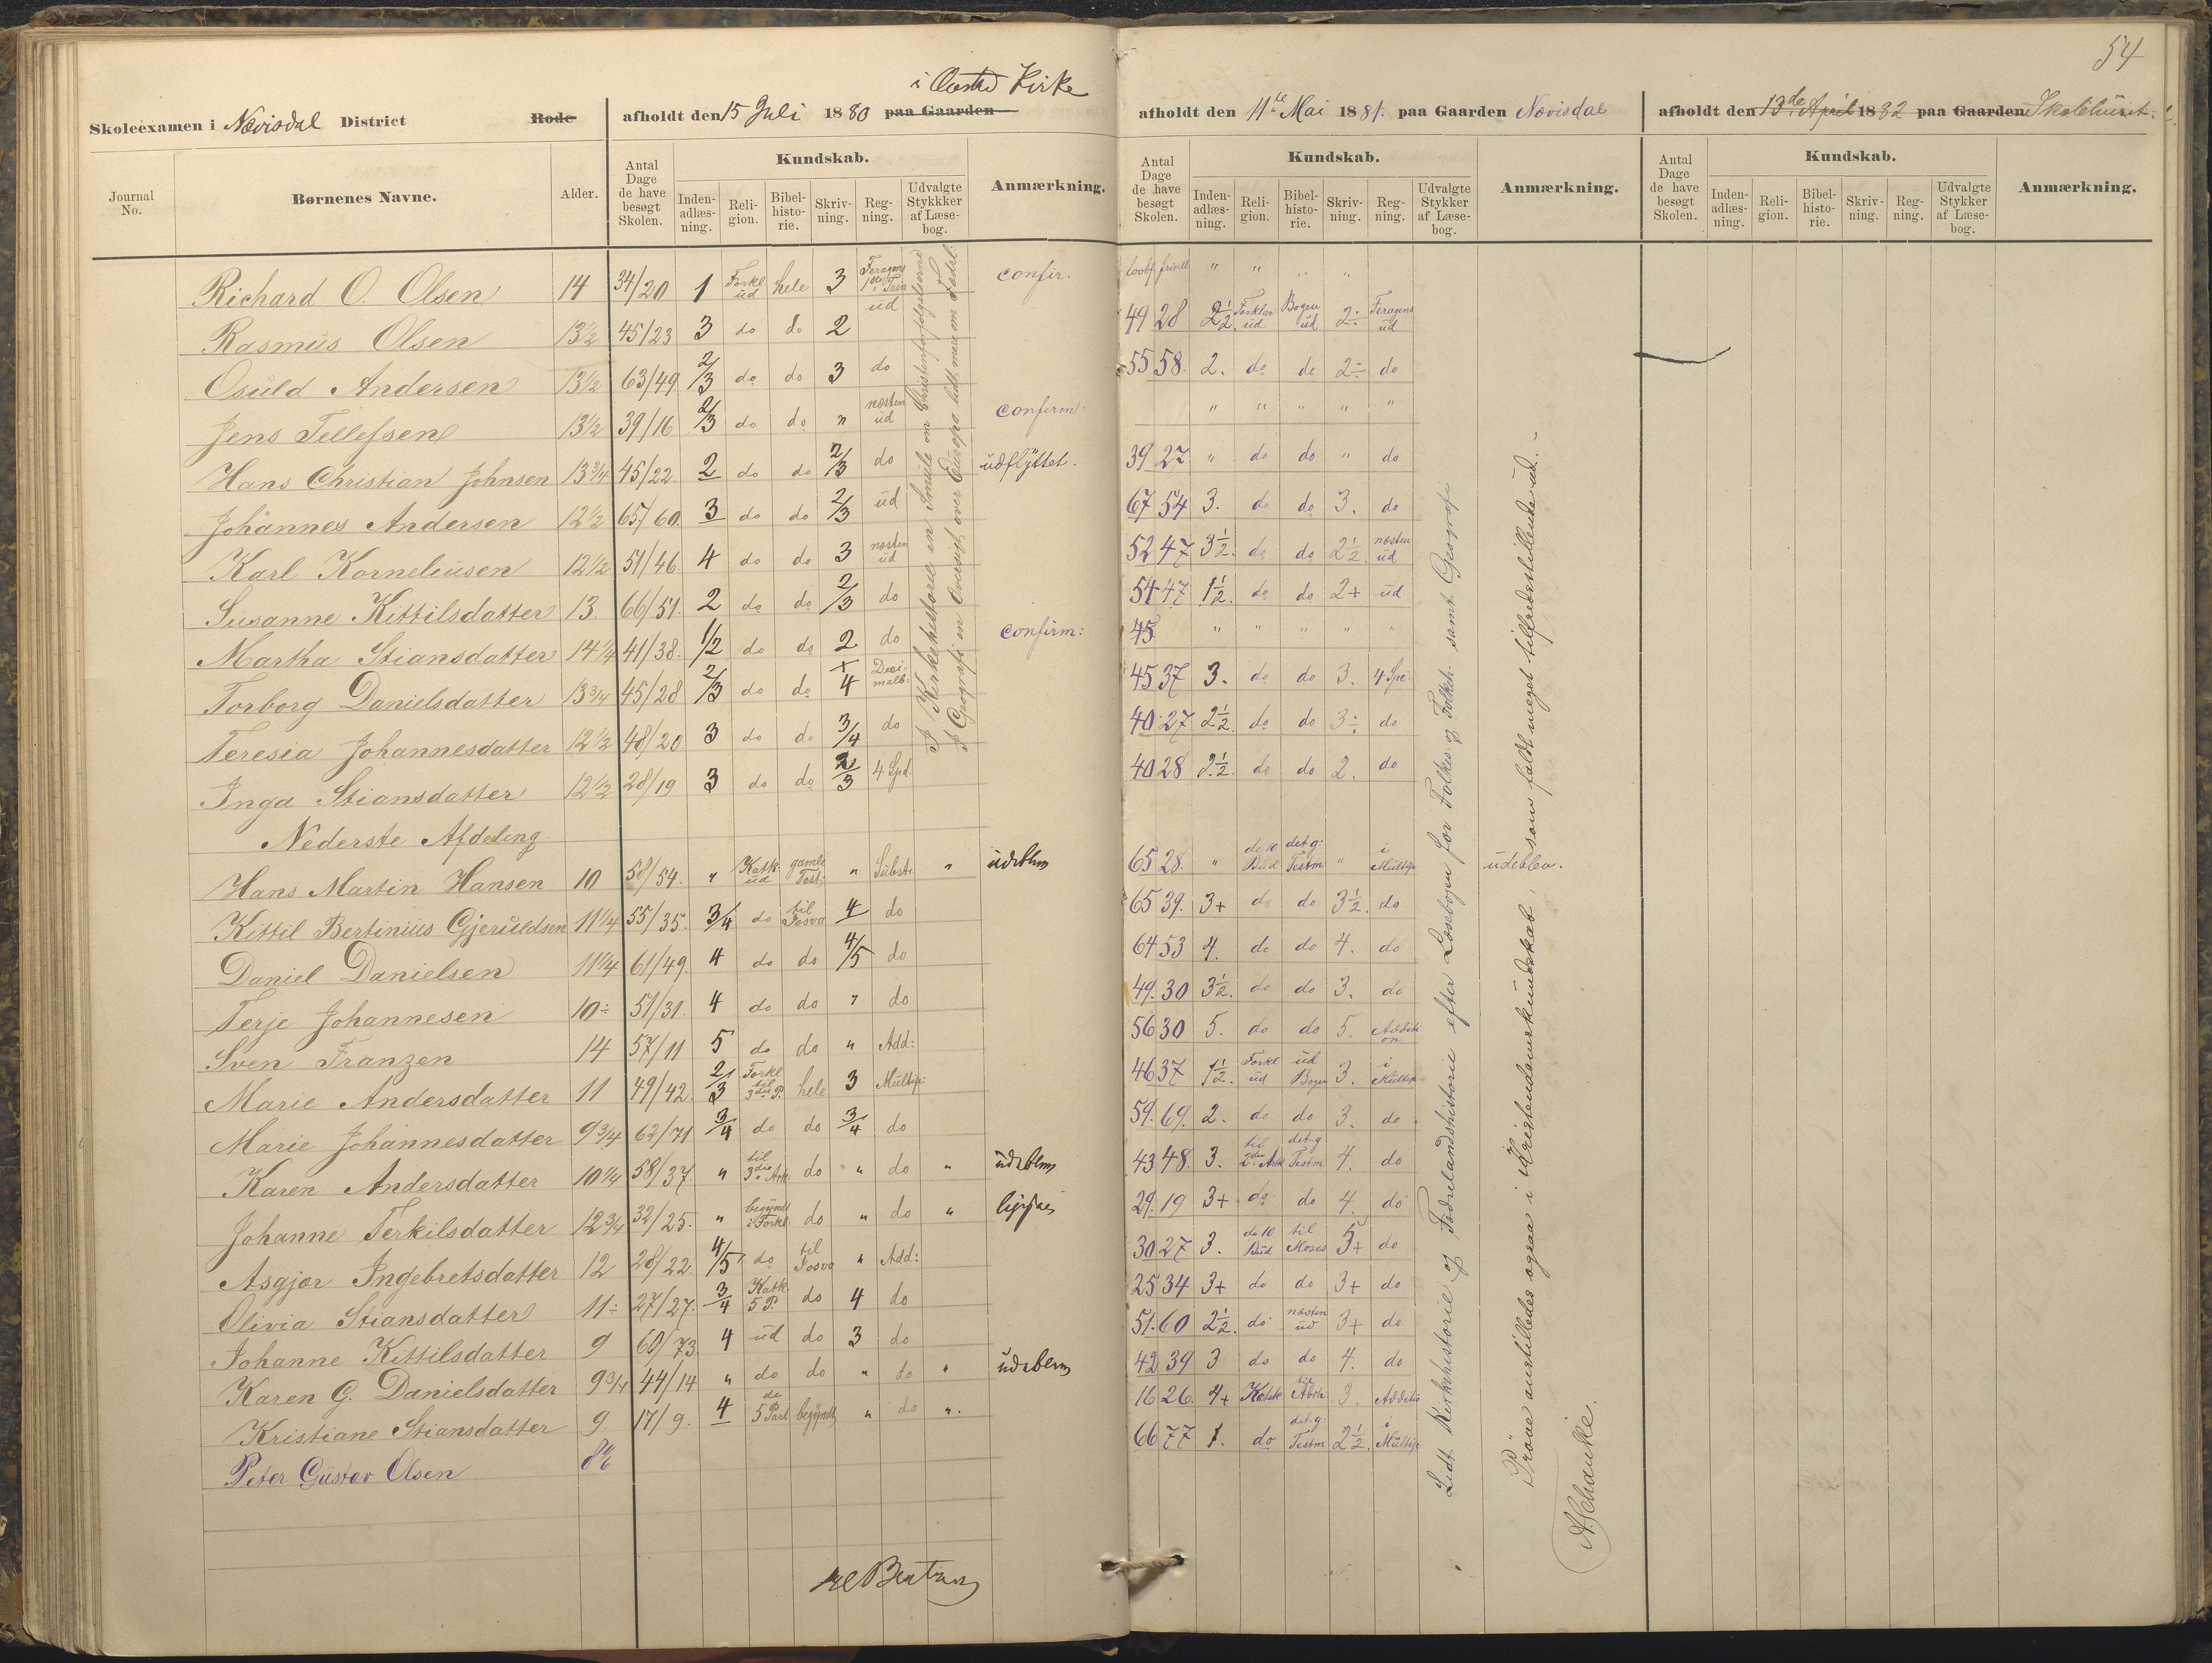 54
Skoleexamen i Nævisdal District Rode afholdt den 15 Juli 1880 paa Gaarden i Kirke
afholdt den 11te Mai 1881. paa Gaarden Nævisdal
afholdt den 13de April 1882 paa Gaarden Skolehuset
Journal No. Børnenes Navne. Alder. Antal Dage de have besøgt Skolen. Kundskab. Inden-adlæs-ning. Reli-gion. Bibel-histo-rie. Skriv-ning. Reg-ning. Udvalgte Stykkker af Læse-bog. Anmærkning.
Antal Dage de have besøgt Skolen. Kundskab. Inden-adlæs-ning. Reli-gion. Bibel-histo-rie. Skriv-ning. Reg-ning. Udvalgte Stykker af Læse-bog. Anmærkning.
Antal Dage de have besøgt Skolen. Kundskab. Inden-adlæs-ning. Reli-gion. Bibel-histo-rie. Skriv-ning. Reg-ning. Udvalgte Stykker af Læse-bog. Anmærkning.
Richard O. Olsen 14 34/20 1 Forkl ud hele 3 confir. " " " "
Rasmus Olsen 13½ 45/23 3 do do 2 ud 49 28 2½ Forklar ud Bogen ud 2÷ Feragens ud
Osuld Andersen 13½ 63/49. 2/3 do do 3 do 55 58. 2. do do 2÷ do
Jens Tellefsen 13½ 39/16 2/3 do do " næsten ud confirm. " " " " "
Hans Christian Johnsen 13¾ 45/22. 2 do do 2/3 do udflyttet. 39 27 " do do " do
Johannes Andersen 12½ 65/60. 3 do do 2/3 ud 67 54 3. do do 3. do
Karl Korneliusen 12½ 51/46. 4 do do 3 næsten ud 52 47 3½. do do 2½. næsten ud
Susanne Kittilsdatter 13. 66/51. 2 do do 2/3 do 54 47 1½. do do 2+ ud
Martha Stiansdatter 14¼ 41/38. 1/2 do do 2 do confirm: 45 " " " " "
Torborg Danielsdatter 13¾ 45/28 2/3 do do 4 Decimalb: 45 37 3. do do 3. 4 Spe
Teresia Johannesdatter 12½ 48/20. 3 do do 3/4 do 40 27 2½ do do 3÷ do
Inga Stiansdatter 12½ 28/19 3 do do 2/3 4 Spd 40 28 2½. do do 2. do
Nederste Afdeling.
Hans Martin Hansen 10 58/54. " Katk ud gamle Test. " Substr. " udeblev 65 28. " de 10 Bud det g: Testm " i Multip udeblev.
Kittil Bertinius Gjeruldsen 11¼ 55/35. 3/4 do til Josva 4 do 65 39. 3+ do do 3½. do
Daniel Danielsen 11¼ 61/49. 4 do do 4/5 do 64 53 4. do do 4. do
Terje Johannesen 10÷ 51/31. 4 do do " do 49. 30 3½. do do 3. do
Sven Franzen 14 57/11 5 do do " Add: 56 30 5. do do 5. Addition
Marie Andersdatter 11 49/42. 2/3 Forkl til 3die P. hele 3 Multip: 46 37 1½. Forkl ud ud Bogen 3. i Multip
Marie Johannesdatter 9¾ 62/71 3/4 do do 3/4 do 59. 69. 2. do do 3. do
Karen Andersdatter 10¼ 58/37. " til 3die Art. do " do " udeblev 43 48. 3. til 2den Artk det g Testm 4. do
Johanne Terkilsdatter 12¾ 32/25. " begyndt i Forkl. do " do " 29. 19 3+ do do 4. do
Asgjør Ingebretsdatter 12 28/22 4/5 do til Josva " Add: 30 27 3. de 10 Bud til Moses 5+ do
Olivia Stiansdatter 11÷ 27/27. 3/4 Katk 5 P. do 4 do 25 34 3+ do do 3+ do
Johanne Kittilsdatter 9 60/73 4 ud do 3 do 51. 60 2½. do næsten ud 3+ do
Karen G. Danielsdatter 9¾ 44/14 " do do " do " udeblev 42 39 3 do do 4. do
Kristiane Stiansdatter 9 17/9. 4 de 5 Part begyndt " do ". 16 26. 4+ Katek til Abrh 3. Additio
Peter Gustav Olsen 66 77 1. do det g Testm 2½. i Multip
I Kirkehistorie en Smule om Christenforfølgelserne
I Geografi en Oversigt over Europa lidt mer om Fædrel:
Lidt Kirkehistorie og Fædrelandshistorie efter Læsebogen for Folkes. og Folkeh. samt Geografi
Prøve anstilledes ogsaa i Kristendomskundskab, som faldt meget tilfredsstillende ud.
A. Schanke.